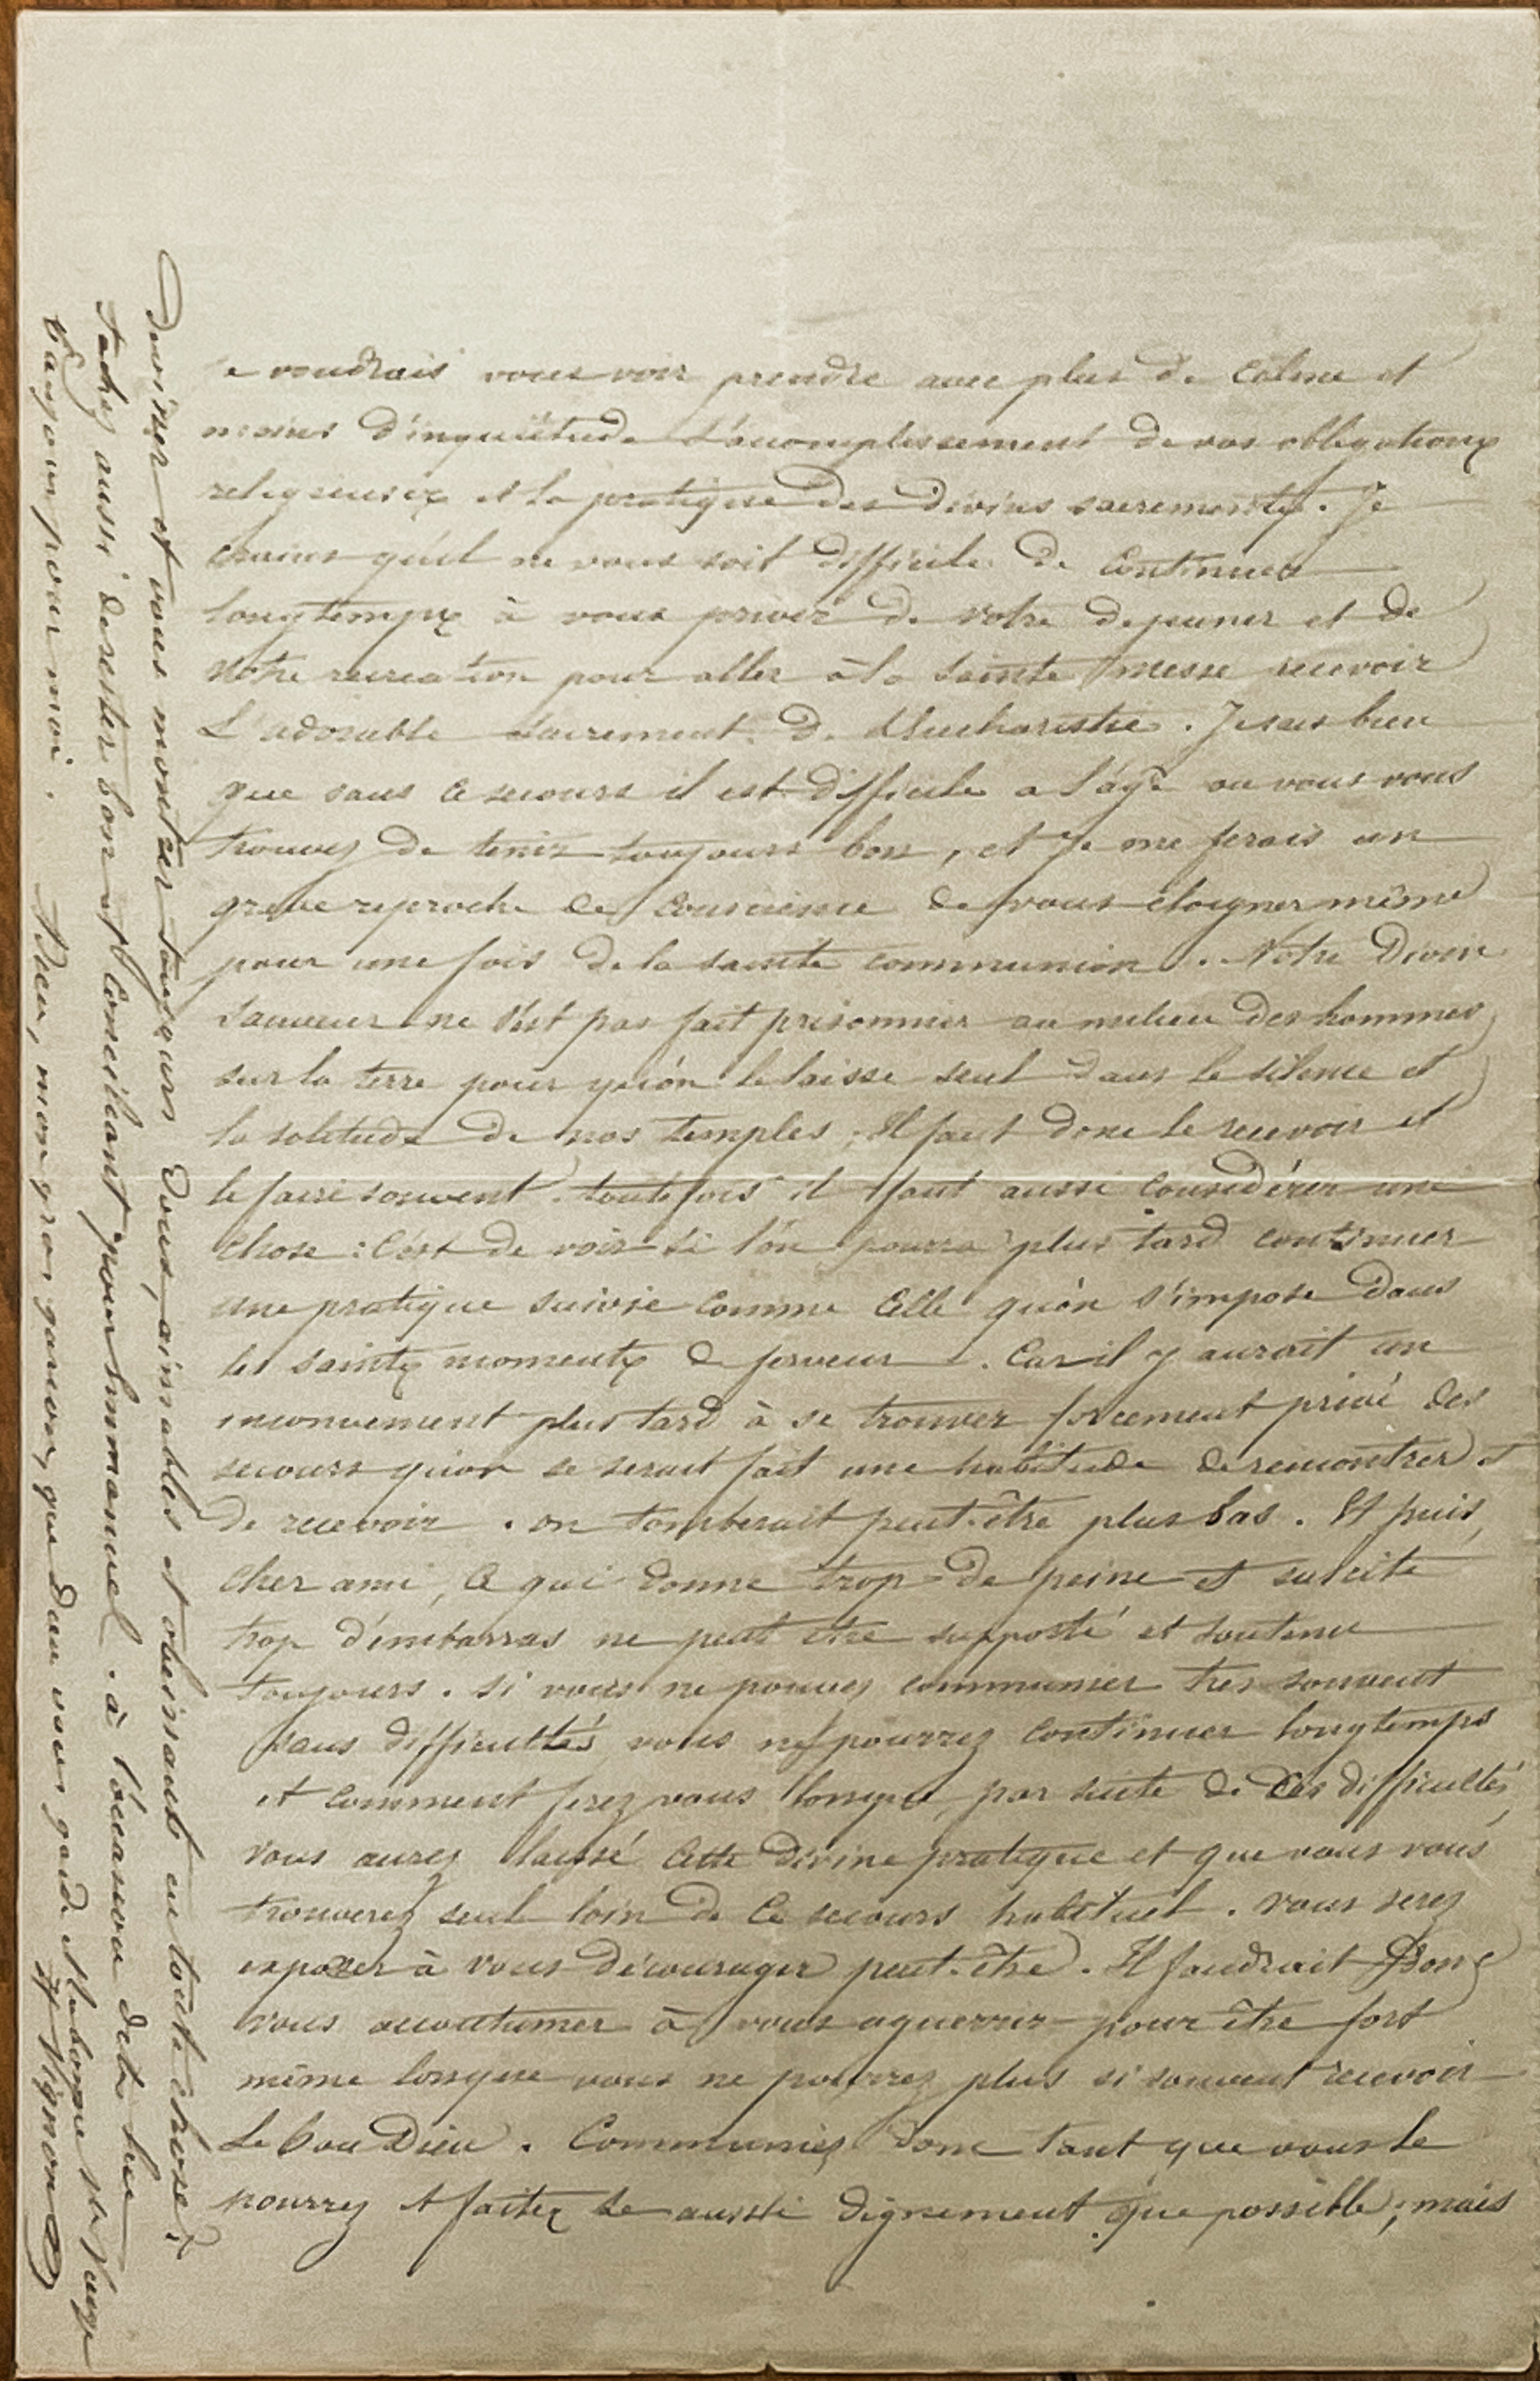 Je voudrais vous voir prendre avec plus de calme et
moins d'inquiétude l'accomplissement de vos obligations
religieuses et la pratique des divins sacrements. Je
crains qu'il ne vous soit difficile de continuer
longtemps à vous priver de votre dejeuner et de
votre recreation pour aller à la sainte messe recevoir
L'adorable sacrement de l'Eucharistie. Je sais bien
que sans ce secours il est difficile a l'âge ou vous vous
trouvez de tenir toujours bon, et je me ferais un
grave reproche de conscience de vous éloigner même
pour une fois de la sainte communion. Notre Divin
Sauveur ne s'est pas fait prisonnier au milieu des hommes
sur la terre pour qu'on le laisse seul dans le silence et
la solitude de nos temples. Il faut donc le recevoir et
le faire souvent. toutefois il faut aussi considérer une
chose : c'est de voir si l'on pourra plus tard continuer
une pratique suivie comme celle qu'on s'impose dans
les saints moments de ferveur. Car il y aurait un
inconvenient plus tard à se trouver forcement privé des
secours qu'on se serait fait une habitude de rencontrer et
de recevoir. on tomberait peut-être plus bas. Et puis,
cher ami, ce qui donne trop de peine et suscite
trop d'embarras ne peut etre supporté et soutenu
toujours. si vous ne pouvez communier tres souvent
sans difficultés vous ne pourrez continuer longtemps
et comment ferez vous lorsque, par suite de ces difficultés,
vous aurez laissé cette divine pratique et que vous vous
trouverez seul loin de ce secours habituel. vous serez
exposer à vous décourager peut-être. Il faudrait donc
vous accoutumer à vous aguerrir pour être fort
même lorsque vous ne pourrez plus si souvent recevoir
Le bon Dieu. Communiez donc tant que vous le
pourrez et faites le aussi dignement que possible; mais
deviner et vous montrer toujours doux, aimables et obeissants en toute chose.
tachez aussi de rester bon et conciliant pour Emmanuel. à l'occasion de la
toujours pour moi. Adieu, mon gros garcon, que Dieu vous garde
Vignon